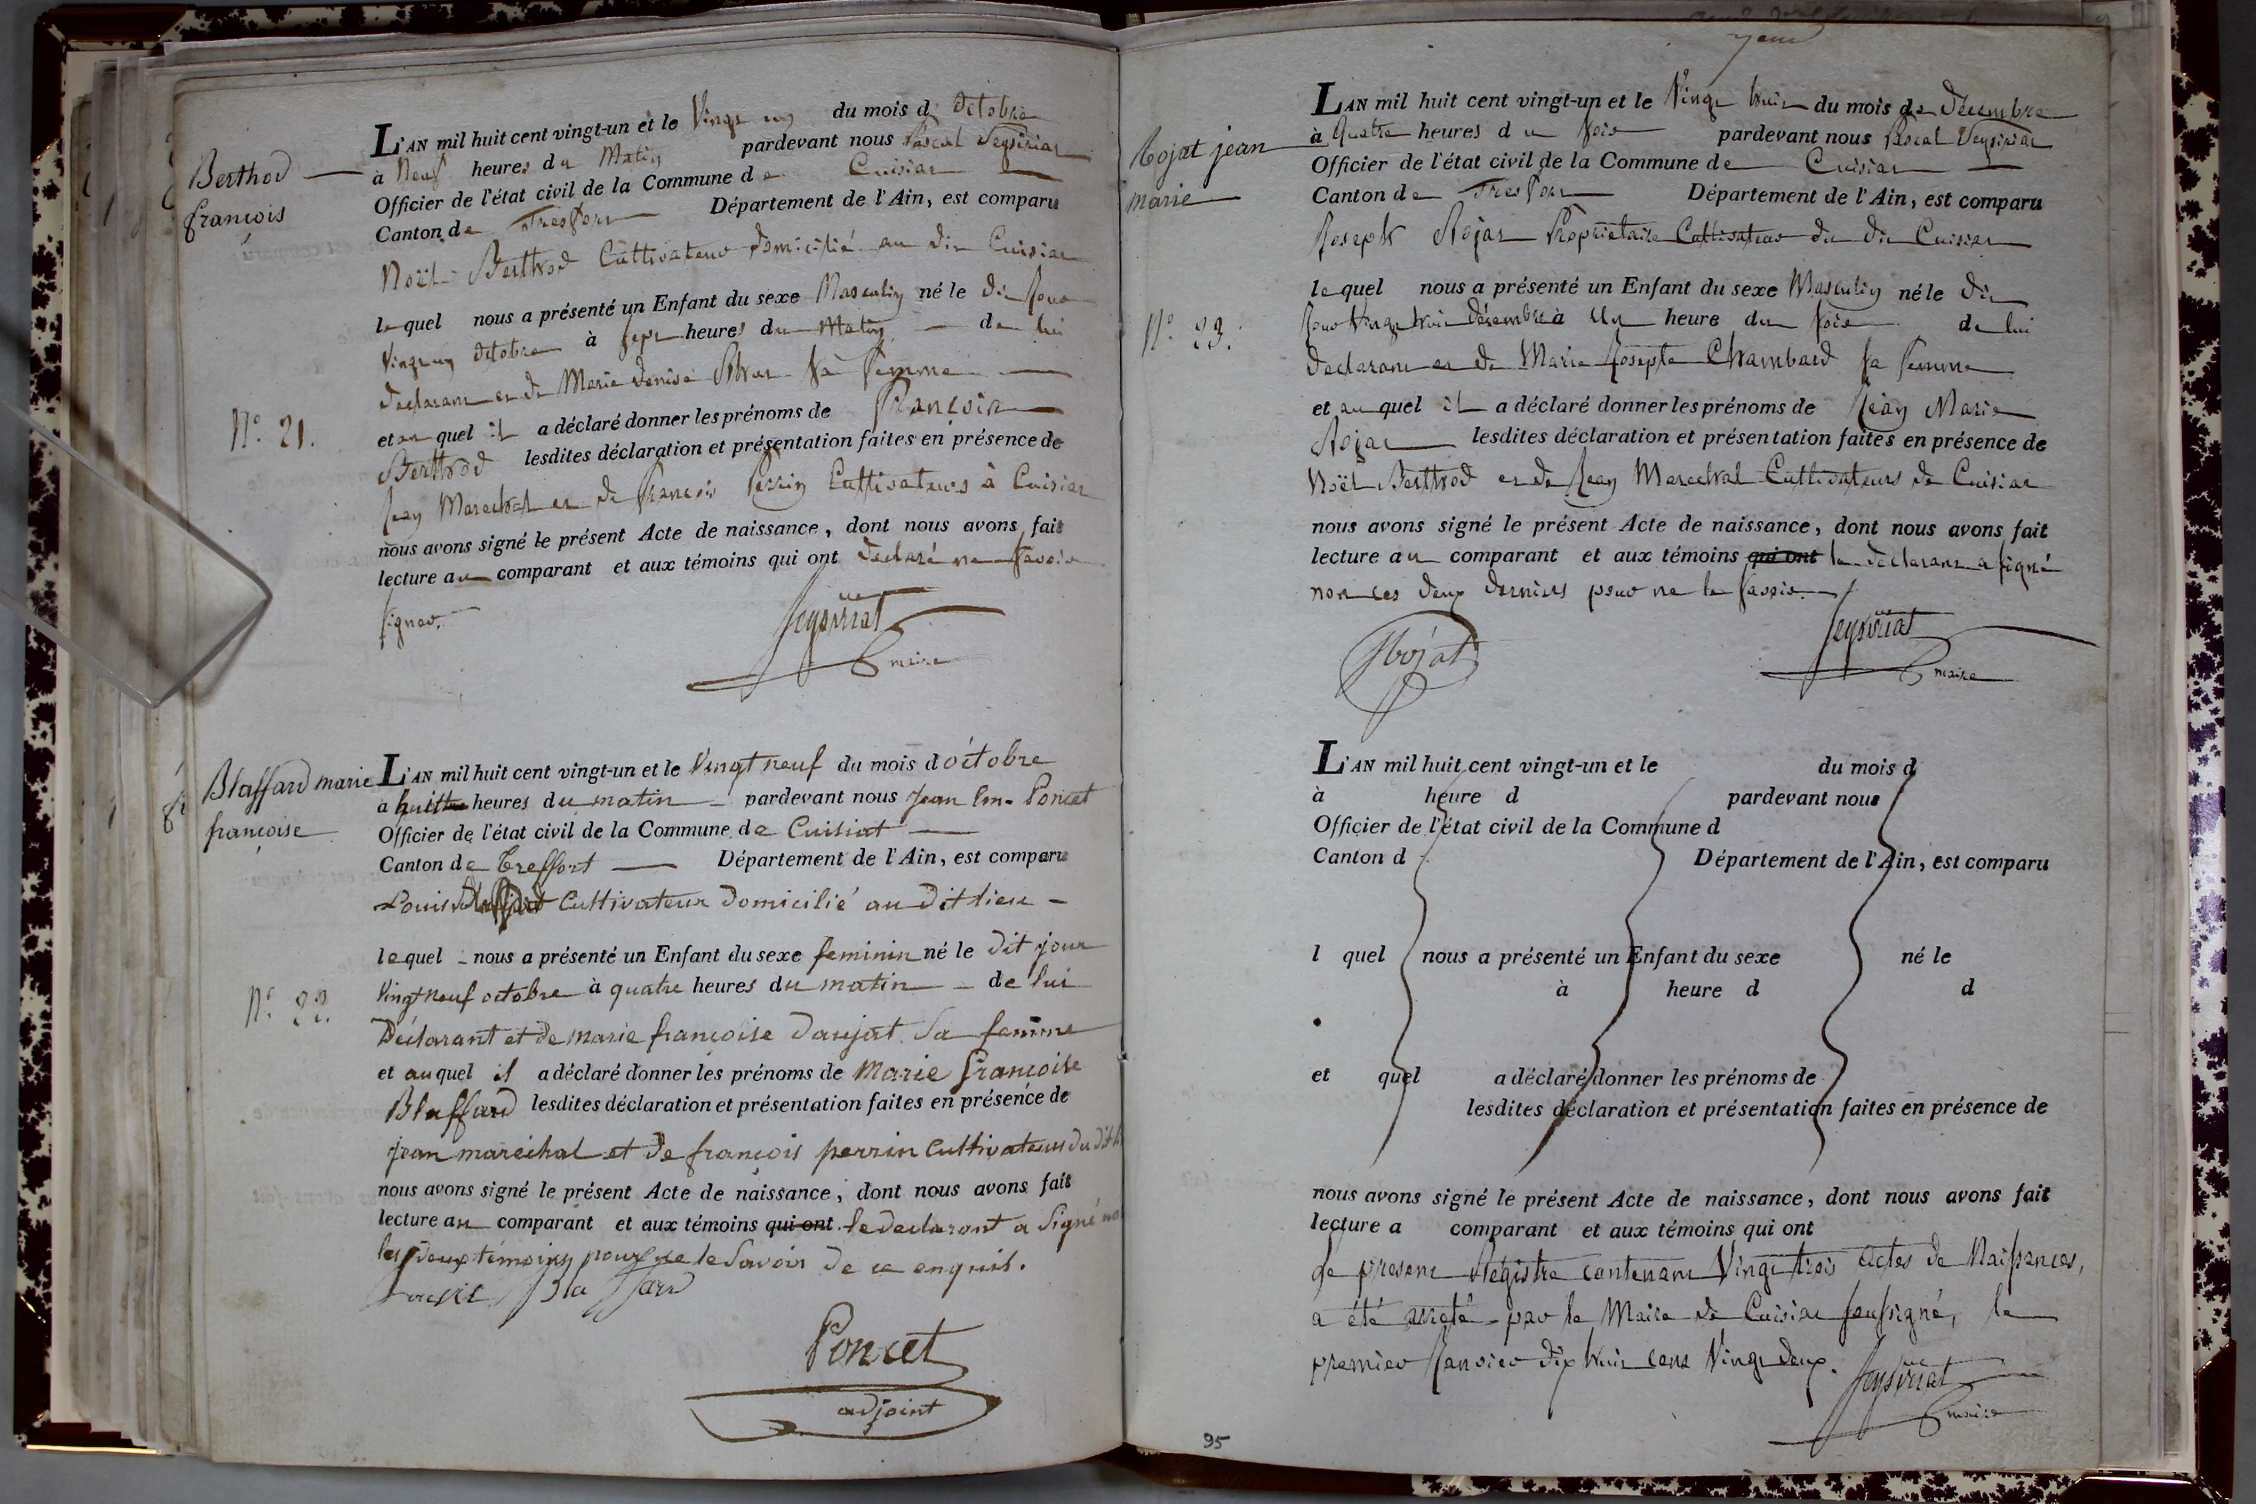 Berthod
françois
N.° 21.
L'AN mil huit cent vingt-un et le Vingt un du mois d' Octobre
à Neuf heures du Matin pardevant nous Pascal Seysiriat
Officier de l'état civil de la Commune de Cuisiat
Canton de Treffort Département de l'Ain, est comparu
Noël Berthod Cultivateur domicilié au dit Cuisiat
lequel nous a présenté un Enfant du sexe Masculin né le dit Jour
Vingt un Octobre à Sept heures du Matin de lui
declarant et de Marie denise sa femme
et auquel il a déclaré donner les prénoms de François
Berthod lesdites déclaration et présentation faites en présence de
Jean Marechal et de François Perrin Cultivateurs à Cuisiat
nous avons signé le présent Acte de naissance, dont nous avons fait
lecture au comparant et aux témoins qui ont declaré ne savoir
signer.
Seysiriat
maire
Blaffard marie
françoise
N.° 22.
L'AN mil huit cent vingt-un et le Vingt neuf du mois d'octobre
à huit heures du matin pardevant nous Jean Em. Poncet
Officier de l'état civil de la Commune de Cuisiat
Canton de Treffort Département de l'Ain, est comparu
Louis Blaffard Cultivateur Domicilié au Dit lieu
lequel nous a présenté un Enfant du sexe feminin né le dit jour
Vingt neuf octobre à quatre heures du matin de lui
Déclarant et de marie françoise Daujat Sa femme
et auquel il a déclaré donner les prénoms de Marie Françoise
Blaffard lesdites déclaration et présentation faites en présence de
Jean maréchal et de françois perrin Cultivateurs du dit
nous avons signé le présent Acte de naissance, dont nous avons fait
lecture au comparant et aux témoins qui ont le declarant a Signé
les deux témoins pour ne le Savoir De ce enquis.
Blaffard
Poncet
adjoint
Rojat jean
marie
N.° 23.
L'AN mil huit cent vingt-un et le Vingt huit du mois de Décembre
à Quatre heures du Soir pardevant nous Pascal Seysiriat
Officier de l'état civil de la Commune de Cuisiat
Canton de Treffort Département de l'Ain, est comparu
Joseph Rojat Propriétaire Cultivateur du dit Cuisiat
lequel nous a présenté un Enfant du sexe Masculin né le dit
Jour Vingt huit Décembre à Une heure du Soir de lui
declarant et de Marie Josepte Chambard sa femme
et auquel il a déclaré donner les prénoms de Jean Marie
Rojat lesdites déclaration et présentation faites en présence de
Noël Berthod et de Jean Marechal Cultivateurs de Cuisiat
nous avons signé le présent Acte de naissance, dont nous avons fait
lecture au comparant et aux témoins qui ont le declarant a signé
non les deux derniers pour ne le savoir.
Rojat
Seysiriat
maire
L'AN mil huit cent vingt-un et le du mois d
à heure d pardevant nous
Officier de l'état civil de la Commune d
Canton d Département de l'Ain, est comparu
l quel nous a présenté un Enfant du sexe né le
à heure d d
et quel a déclaré donner les prénoms de
lesdites déclaration et présentation faites en présence de
nous avons signé le présent Acte de naissance, dont nous avons fait
lecture a comparant et aux témoins qui ont
Le present Registre contenant Vingt trois actes de Naissances,
a été arreté par le Maire de Cuisiat soussigné, le
premier Janvier dix huit cent Vingt deux.
Seysiriat
maire
95